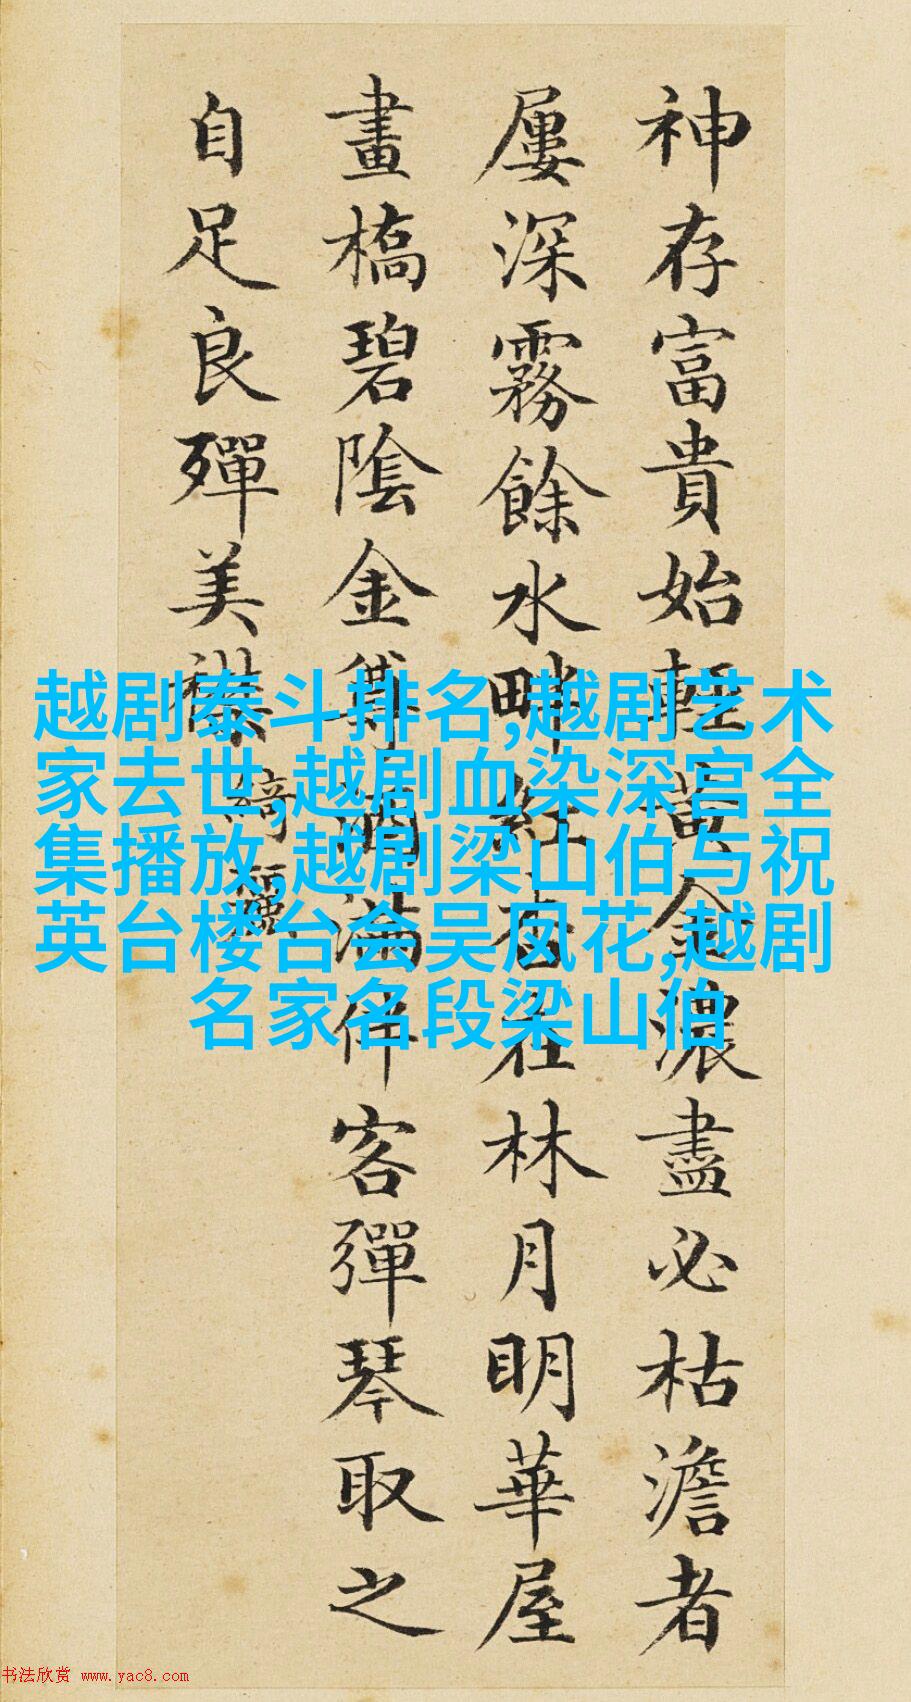 神存富貴始輕黃金濃盡必枯澹者
屢深霧餘水畔紅杏在林月明華屋
畫橋碧陰金尊酒滿伴客彈琴取之
自足良殫美襟
綺麗
越剧泰斗排名,越剧艺术
家去世,越剧血染深宫全
集播放,越剧梁山伯与祝
英台楼台会吴凤花,越剧
名家名段梁山伯
书法欣赏 www.yac8.com